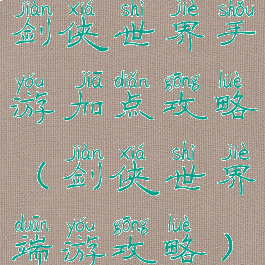 jiàn xiá shì jiè shǒu
剑侠世界手
yóu jiā diǎn gōng lüè
游加点攻略
jiàn xiá shì jiè
（剑侠世界
duān yóu gōng lüè
端游攻略）